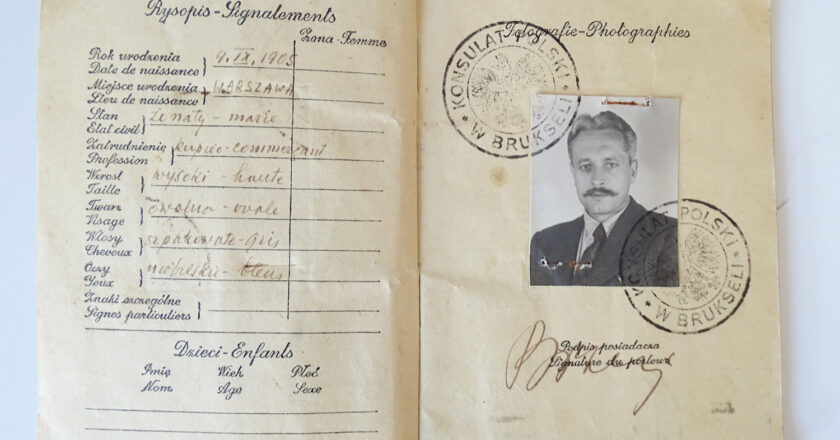 Rysopis-Signalements
Żona-Femme
Rok urodzenia
Date de naissance
9. IX. 1905
Miejsce urodzenia
Lieu de naissance
WARSZAWA
Stan
Etat civil
żonaty - marie
Zatrudnienie
Profession
kupiec-commercant
Wzrost
Taille
wysoki - haute
Twarz
Visage
owalna - ovale
Włosy
Cheveux
szpakowate-gris
Oczy
Yeux
niebieskie - bleus
Znaki szczególne
Signes particuliers
Dzieci-Enfants
Imię Wiek Płeć
Nom Age Sexe
Fotografie-Photographies
KONSULAT POLSKI
W BRUKSELI
KONSULAT POLSKI
W BRUKSELI
Podpis posiadacza
Signature du porteur